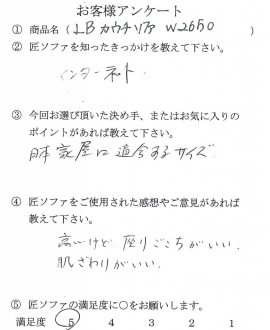 お客様アンケート
① 商品名（LBカウチソファ W2650）
② 匠ソファを知ったきっかけを教えて下さい。
インターネット
③ 今回お選び頂いた決め手、またはお気に入りの
ポイントがあれば教えて下さい。
日本家屋に適合するサイズ
④ 匠ソファをご使用された感想やご意見があれば
教えて下さい。
高いけど、座りごこちがいい。
肌ざわりがいい。
⑤ 匠ソファの満足度に○をお願いします。
満足度 5 4 3 2 1